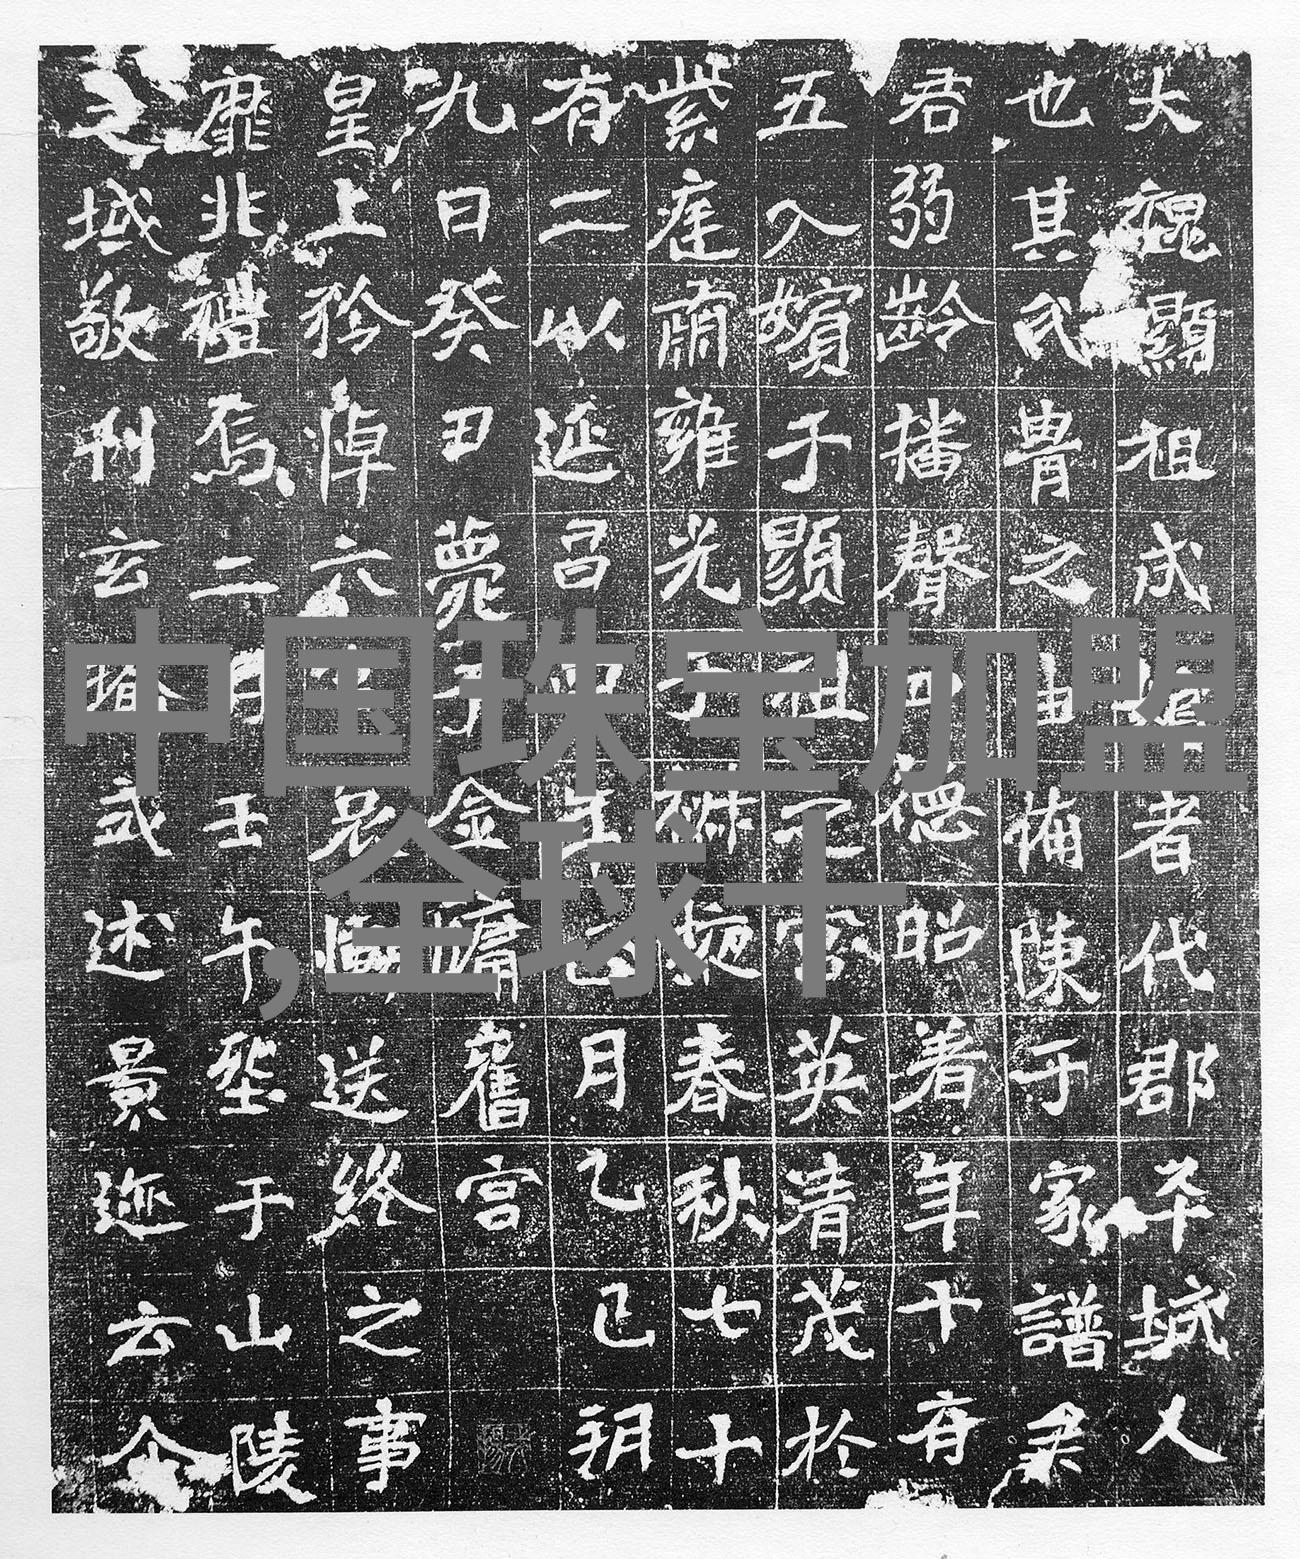 大魏顯祖成者代郡平城人
也其氏冑之由備陳于家譜矣
君弱齡播聲四德昭著年十有
五入嬪于顯祖之宮英清茂於
紫庭肅雍光于椒掖春秋七十
有二以延昌月乙巳朔
九日癸丑薨于金墉舊宮
皇上矜悼六哀慟送終之事
靡非禮焉二月壬午塟于山陵
之域敬刊玄式述景迹云尒
中国珠宝加盟
,全球十